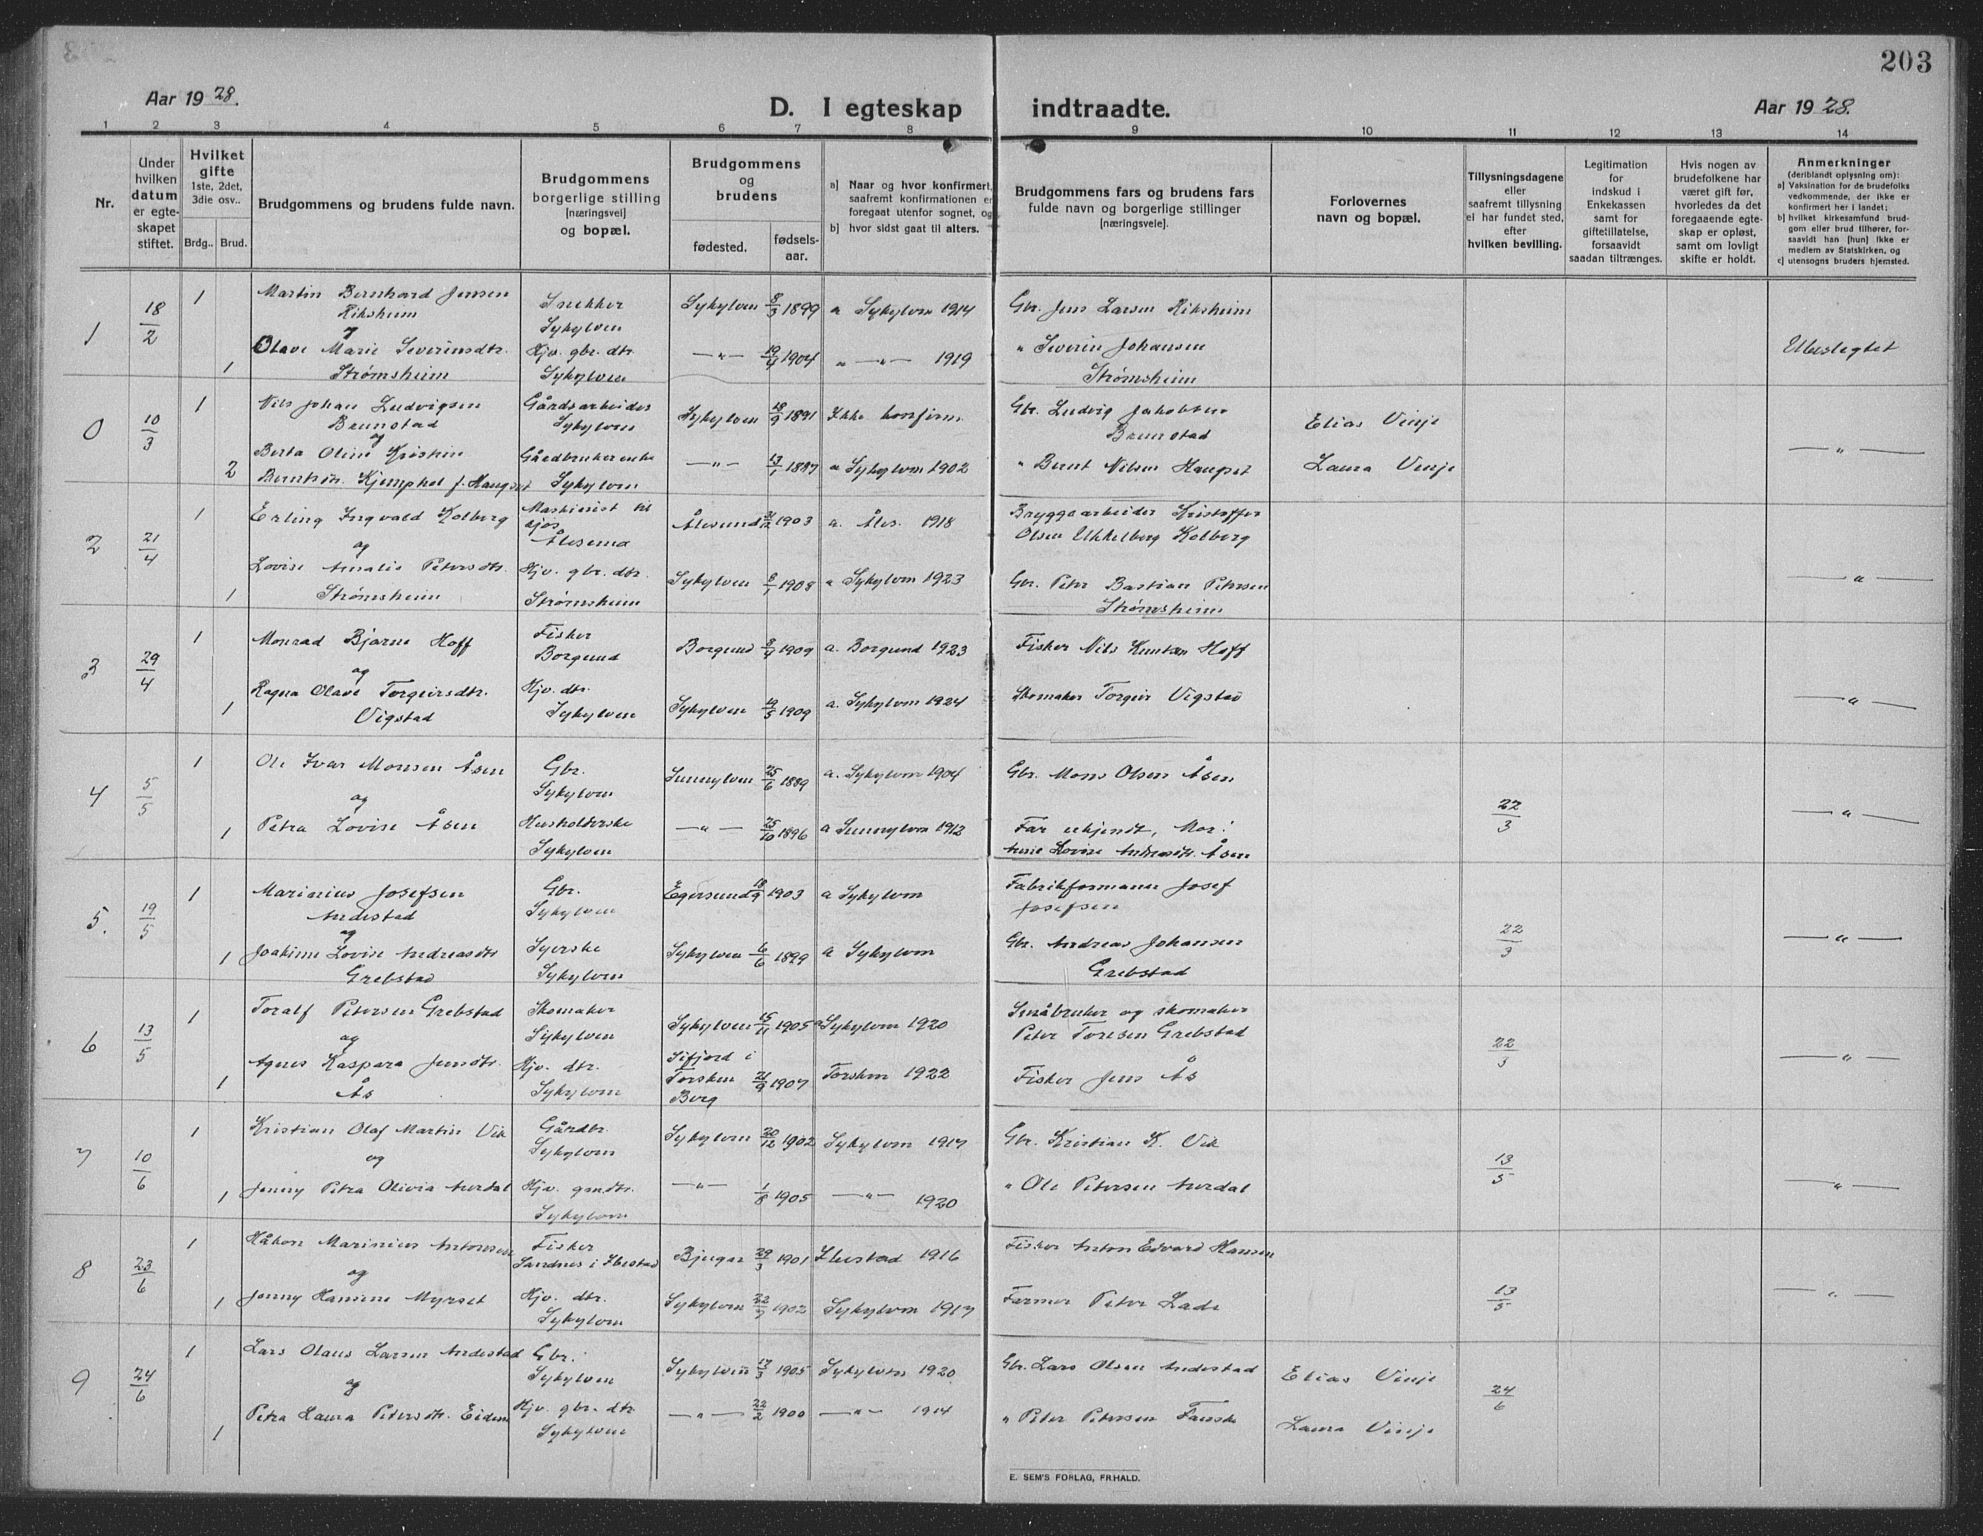 203
Aar 1928.
D. I egteskap indtraadte.
Aar 1928.
1 2 3 4 5 6 7 8 9 10 11 12 13 14
Nr.
Under hvilken datum er egteskapet stiftet.
Hvilket gifte 1ste, 2det, 3die osv..
Brdg.. Brud.
Brudgommens og brudens fulde navn.
Brudgommens borgerlige stilling [næringsvei] og bopæl.
Brudgommens og brudens
fødested.
fødsels-aar.
a) Naar og hvor konfirmert, saafremt konfirmationen er foregaat utenfor sognet, og
b) hvor sidst gaat til alters.
Brudgommens fars og brudens fars fulde navn og borgerlige stillinger [næringsveie].
Forlovernes navn og bopæl.
Tillysningsdagene eller saafremt tillysning ei har fundet sted, efter hvilken bevilling.
Legitimation for indskud i Enkekassen samt for giftetillatelse, forsaavidt saadan tiltrænges.
Hvis nogen av brudefolkene har været gift før, hvorledes da det foregaaende egteskap er opløst, samt om lovligt skifte er holdt.
Anmerkninger (deriblandt oplysning om):
a) Vaksination for de brudefolks vedkommende, der ikke er konfirmert her i landet;
b) hvilket kirkesamfund brudgom eller brud tilhører, forsaavidt han [hun] ikke er medlem av Statskirken, og
c) utensogns bruders hjemsted.
1 18/2 1 Martin Bernhard Jensen Riksheim Snekker Sykylven Sykylven 8/3 1899 a Sykylven 1914 Gbr. Jens Larsen Riksheim
og
1 Olave Marie Severinsdtr. Strømsheim Hjv. gbr. dtr. Sykylven —"— 19/4 1904 " —"— 1919 " Severin Johansen Strømsheim Ubeslegtet
0 10/3 1 Nils Johan Ludvigsen Brunstad Gårdsarbeider Sykylven Sykylven 18/9 1891 Ikke konfirm. Gbr. Ludvig Jakobsen Brunstad Elias Vinje
og
2 Berta Oline Kristine Berntsdtr. Kjemphol f. Haugset Gårdbrukerenke Sykylven —"— 13/1 1887 a Sykylven 1902 " Bernt Nilsen Haugset Laura Vinje —"—
2 21/4 1 Erling Ingvald Kolberg Maskinist til sjøs Ålesund Ålesund 1903 a. Åles. 1918 Bryggearbeider Kristoffer Olsen Ukkelberg Kolberg
og
1 Lovise Amalie Petersdtr. Strømsheim Hjv. gbr. dtr. Strømsheim Sykylven 8/1 1908 a Sykylven 1923 Gbr. Peter Bastian Petersen Strømsheim —"—
3 29/4 1 Monrad Bjarne Hoff Fisker Borgund Borgund 8/4 1909 a. Borgund 1923 Fisker Nils Knutsen Hoff
og
1 Ragna Olave Torgeirsdtr. Vigstad Hjv. dtr. Sykylven Sykylven 19/5 1909 a. Sykylven 1924 Skomaker Torgeir Vigstad —"—
4 5/5 1 Ole Ivar Monsen Åsen Gbr. Sykylven Sunnylven 25/6 1889 a. Sykylven 1904 Gbr. Mons Olsen Åsen
og
1 Petra Lovise Åsen Husholderske Sykylven —"— 25/10 1896 a Sunnylven 1912 Far ukjendt, Mor: Anne Lovise Andreasdtr. Åsen 22/3 —"—
5. 19/5 1 Marinius Josefsen Andestad Gbr. Sykylven Egersund 18/9 1903 a Sykylven Fabrikformann Josef Josefsen
og
1 Joakime Lovise Andreasdtr Grebstad Syerske Sykylven Sykylven 6/6 1899 a Sykylven Gbr. Andreas Johansen Grebstad 22/3 —"—
6 13/5 1 Toralf Petersen Grebstad Skomaker Sykylven Sykylven 15/11 1905 a Sykylven 1920 Småbruker og skomaker Peter Toresen Grebstad
og
1 Agnes Kaspara Jensdtr. Ås Hjv. dtr. Sykylven Sifjord i Torsken Berg 21/9 1907 Torsken 1922 Fisker Jens Ås 22/3 —"—
7 10/6 1 Kristian Olaf Martin Vik Gårdbr. Sykylven Sykylven 20/12 1902 Sykylven 1917 Gbr. Kristian K. Vik
og
1 Jenny Petra Olivia Aurdal Hjv. grndtr. Sykylven —"— 1/8 1905 —"— 1920 " Ole Petersen Aurdal 13/5 —"—
8 23/6 1 Håkon Marinius Antonsen Fisker Sandnes i Ibestad Bjugn 29/3 1901 Ibestad 1916 Fisker Anton Edvard Hansen
og
1 Jenny Hansine Myrset Hjv. dtr. Sykylven Sykylven 22/7 1902 Sykylven 1917 Farmer Peter Lade 13/5 —"—
9 24/6 1 Lars Olaus Larsen Andestad Gbr. Sykylven Sykylven 17/3 1905 Sykylven 1920 Gbr. Lars Olsen Andestad Elias Vinje
og
1 Petra Laura Petersdtr. Eidem Hjv. gbr. dtr. Sykylven —"— 22/2 1900 —"— 1914 " Peter Petersen Fauske Laura Vinje 24/6
E. SEM'S FORLAG, FR.HALD.